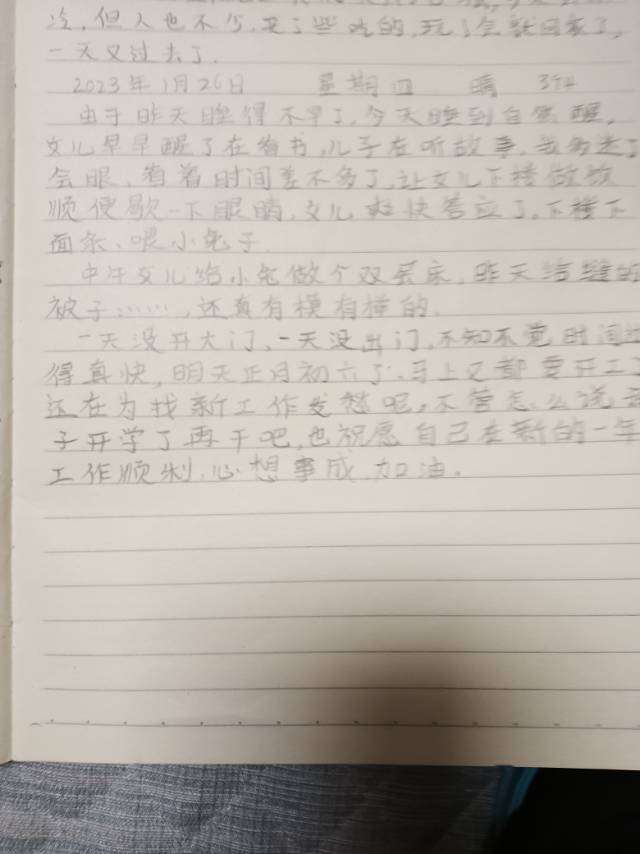 冷,但人也不少,买了些吃的,玩了会就回家了,
一天又过去了.
2023年1月26日 星期四 晴
由于昨天睡得不早了,今天睡到自然醒,
女儿早早醒了在看书,儿子在听故事,我多迷了
会眼,看着时间差不多了,让女儿下楼做饭
顺便歇一下眼睛,女儿爽快答应了,下楼下
面条、喂小兔子.
中午女儿给小兔做个双层床,昨天给缝的
被子……,还真有模有样的.
一天没开大门,一天没出门,不知不觉时间过
得真快,明天正月初六了,马上又都要开工了
还在为找新工作发愁呢,不管怎么说
子开学了再干吧,也祝愿自己在新的一年
工作顺利,心想事成,加油.